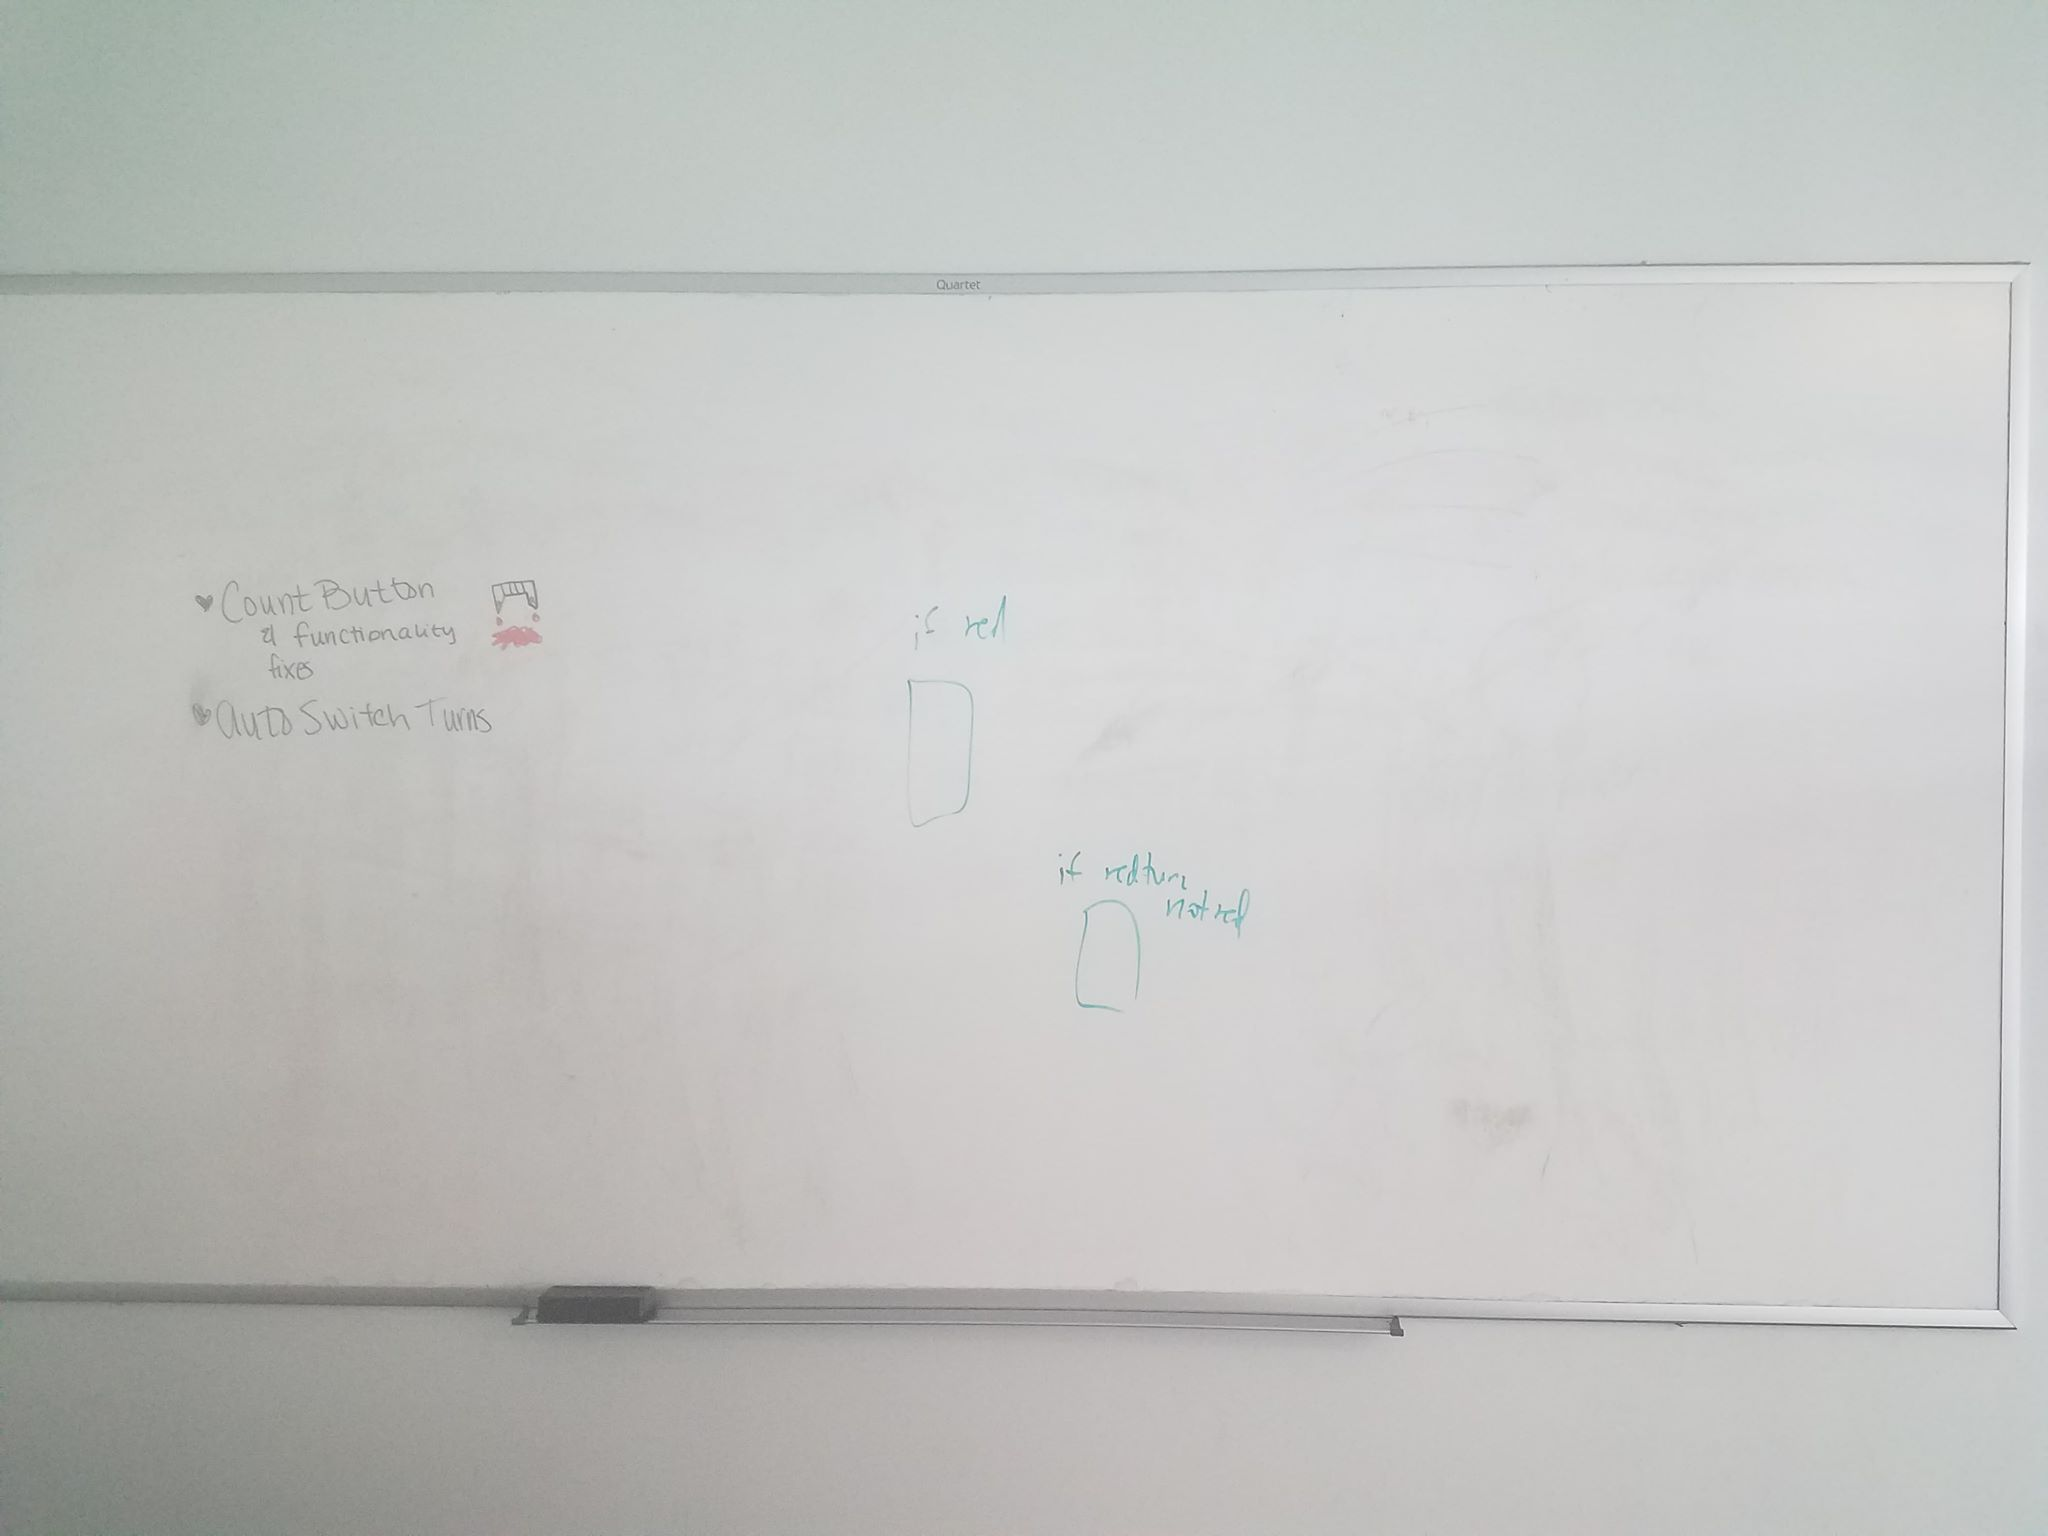 Quartet
Count Button
& functionality
fixes
Auto Switch Turns
if red
if redturn
not red